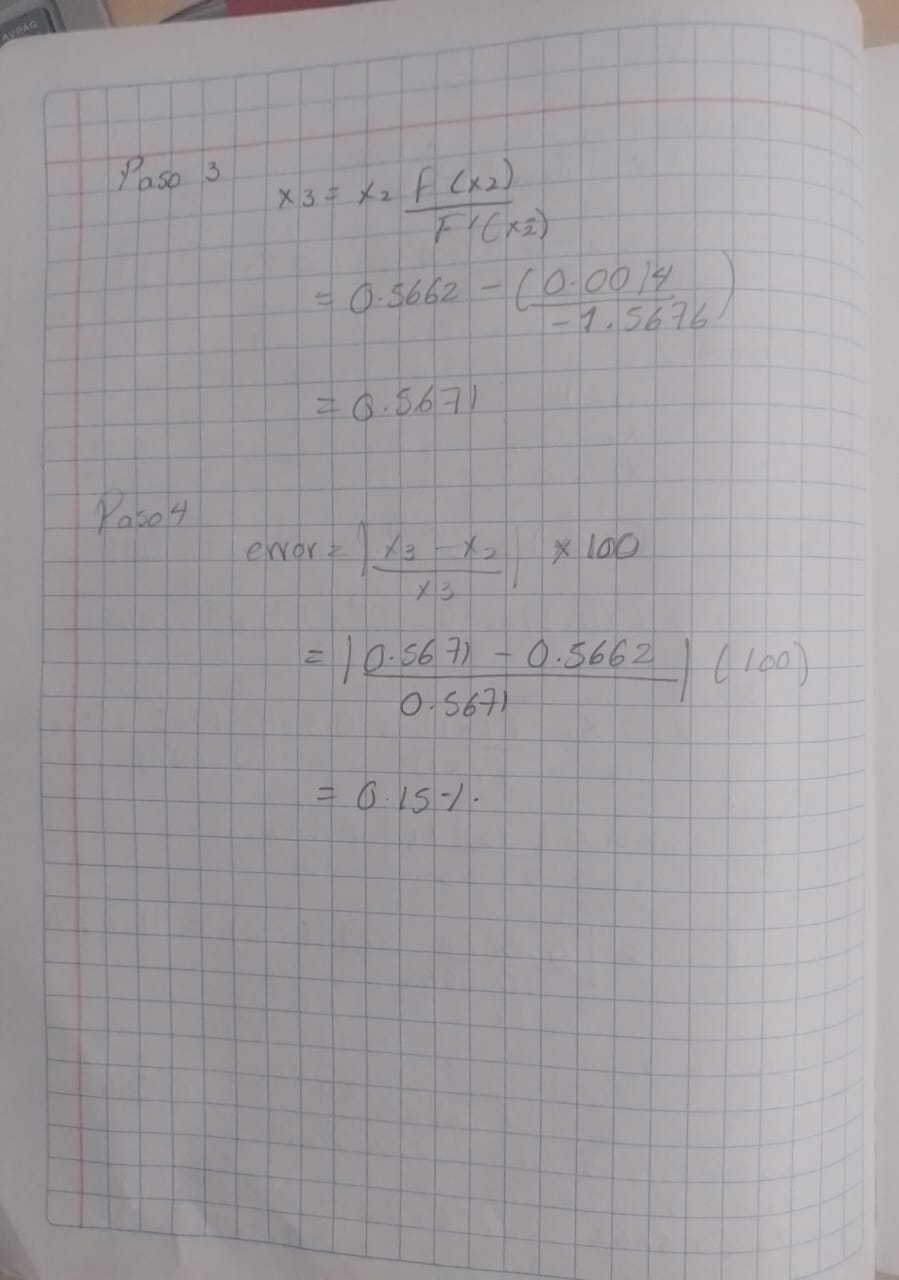 Paso 3
x3 = x2 f(x2)
F'(x2)
= 0.5662 - (0.0014
-1.5676)
= 0.5671
Paso 4
error = |x3 - x2| x 100
x3
= |0.5671 - 0.5662| (100)
0.5671
= 0.15%.